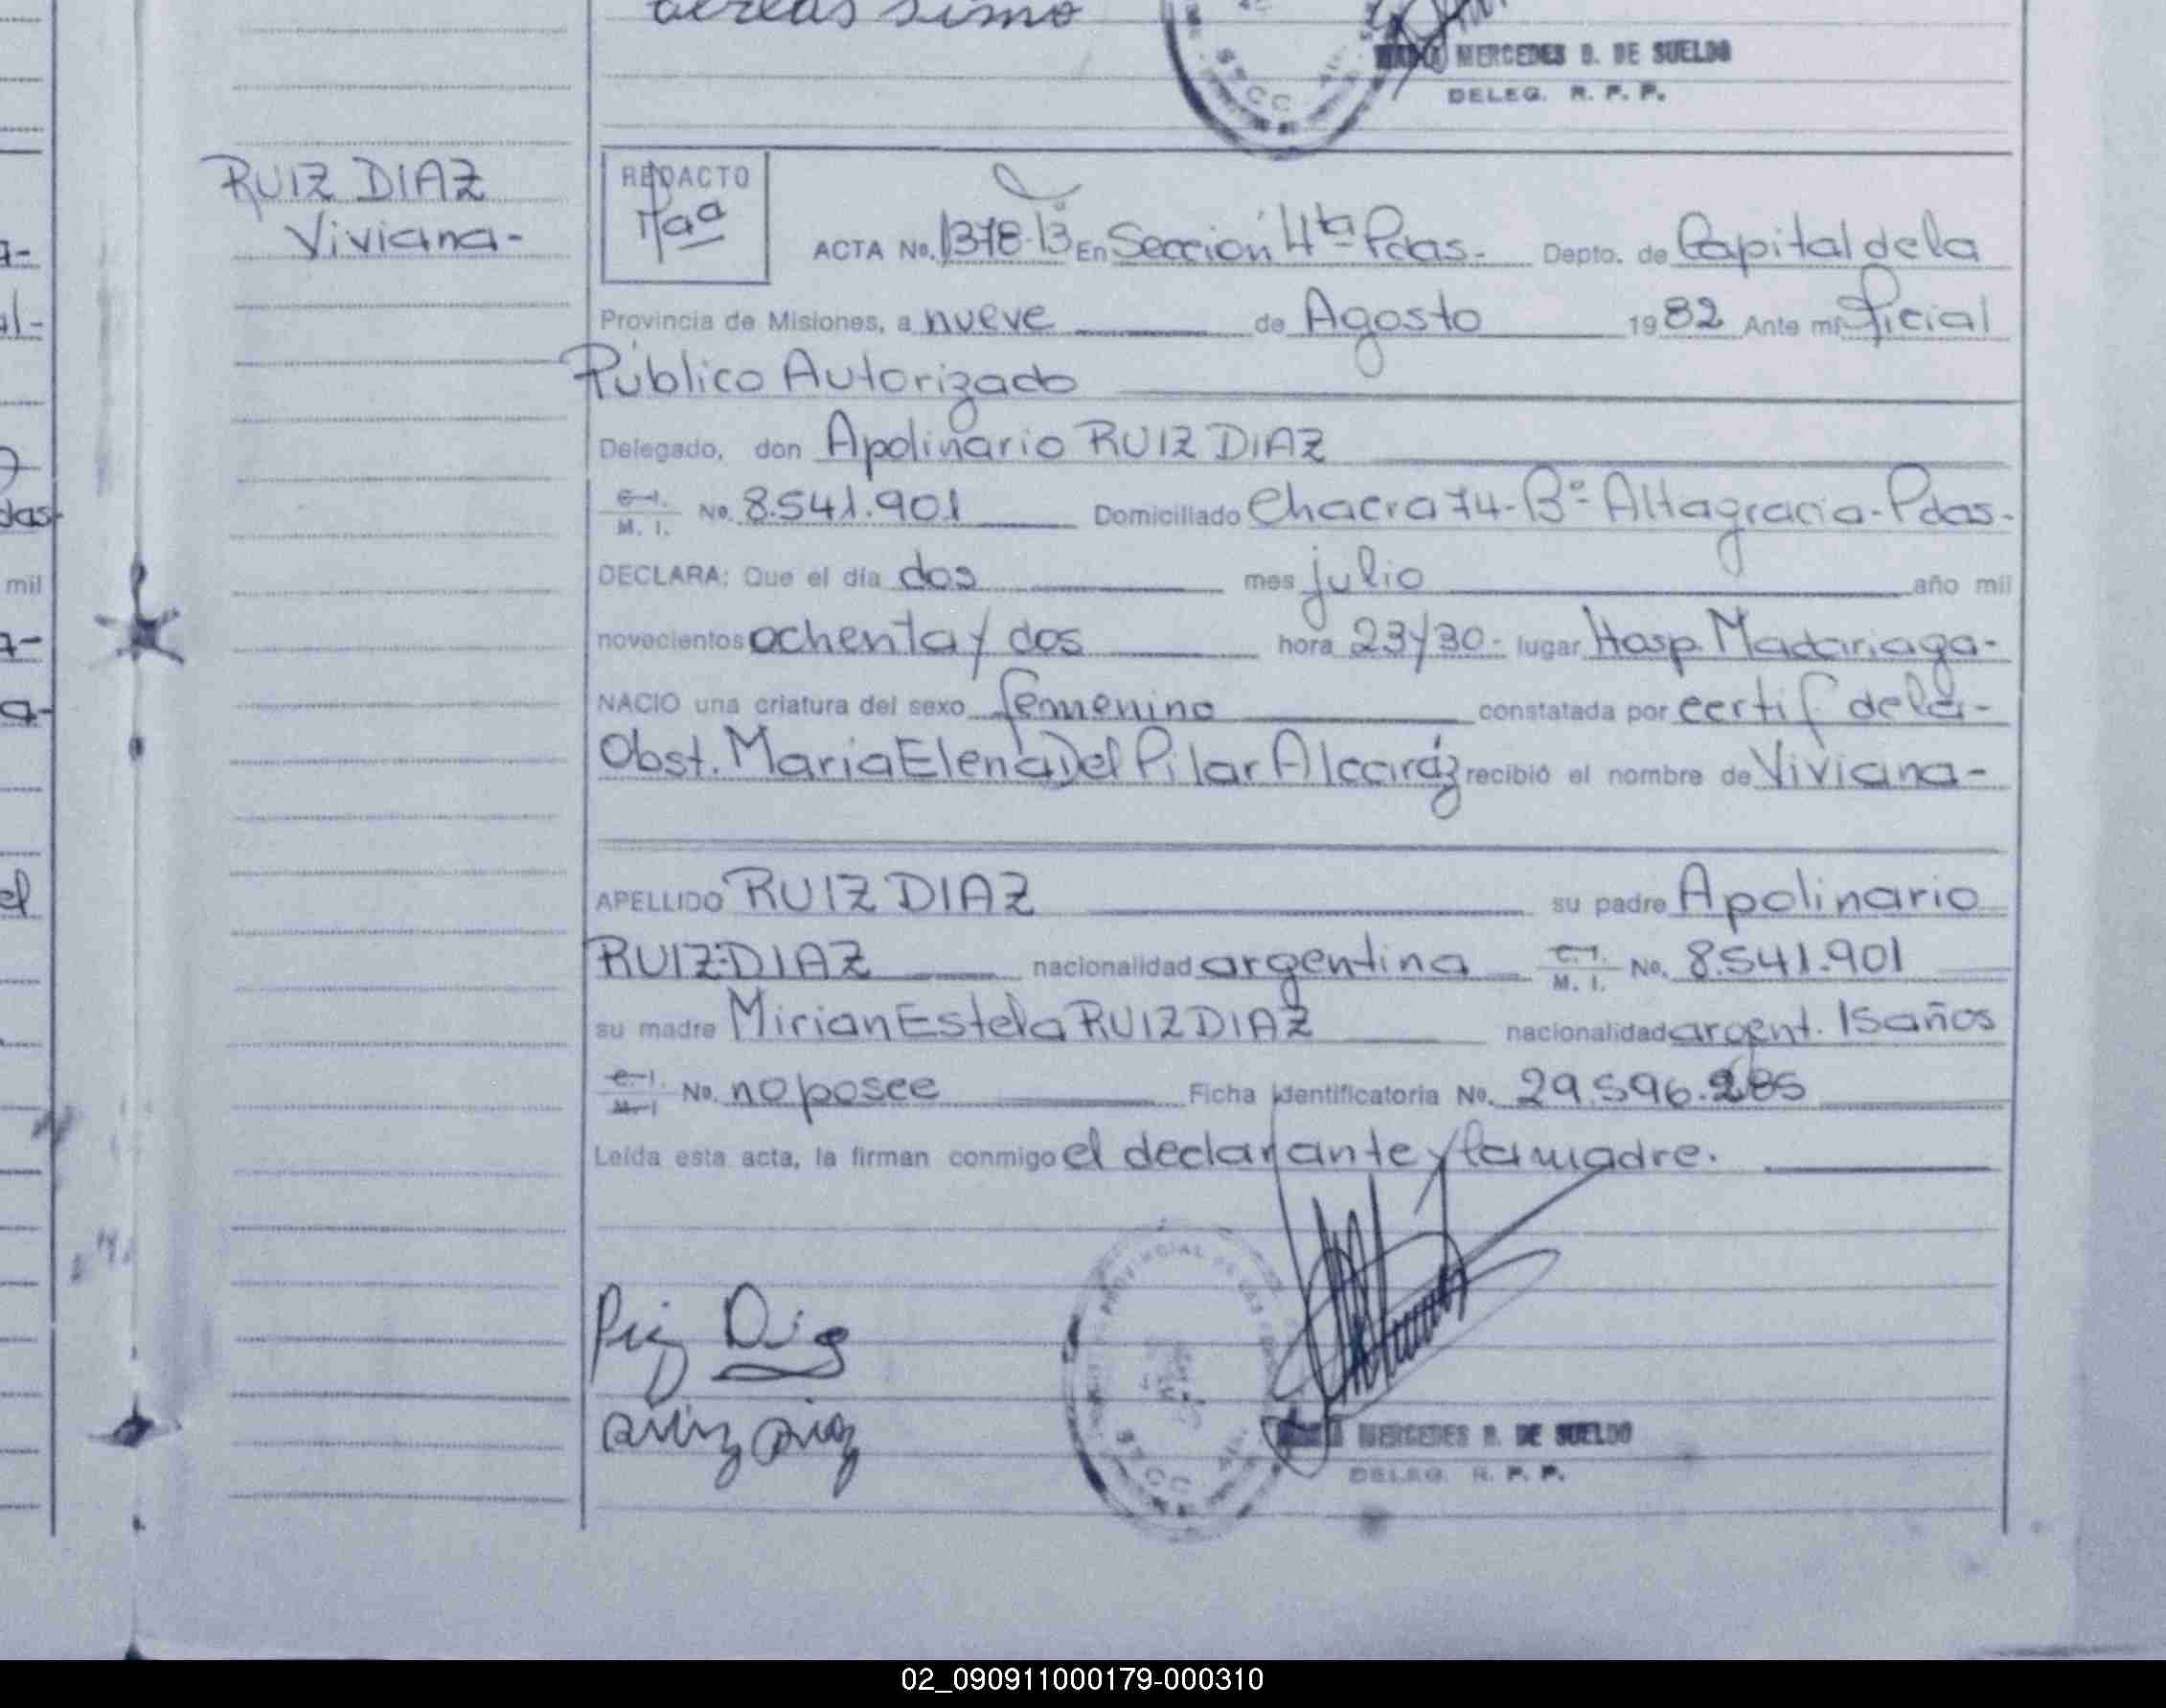 MERCEDES B. DE SUELDO
DELEG. R. P. P.
RUIZ DIAZ
Viviana-
REDACTO
ACTA No. 1378-13º En Sección 4ta Pdas- Depto. de Capital de la
Provincia de Misiones, a nueve de Agosto 1982 Ante mí Oficial
Público Autorizado
Delegado, don Apolinario RUIZ DIAZ
C. I.
M. I. No. 8.541.901 Domiciliado Chacra 74-Bº Altagracia-Pdas-
DECLARA: Que el día dos mes julio año mil
novecientos ochenta y dos hora 23y30- lugar Hosp. Madariaga-
NACIO una criatura del sexo femenino constatada por certif de la-
Obst. María Elena Del Pilar Alcaráz recibió el nombre de Viviana-
APELLIDO RUIZ DIAZ su padre Apolinario
RUIZ-DIAZ nacionalidad argentina C. I.
M. I. No. 8.541.901
su madre Mirian Estela RUIZ DIAZ nacionalidad argent. 15 años
C. I.
M. I. No. no posee Ficha Identificatoria No. 29.596.285
Leída esta acta, la firman conmigo el declarante y la madre.
Ruiz Diaz
MERCEDES B. DE SUELDO
DELEG. R. P. P.
mil
el
02_090911000179-000310